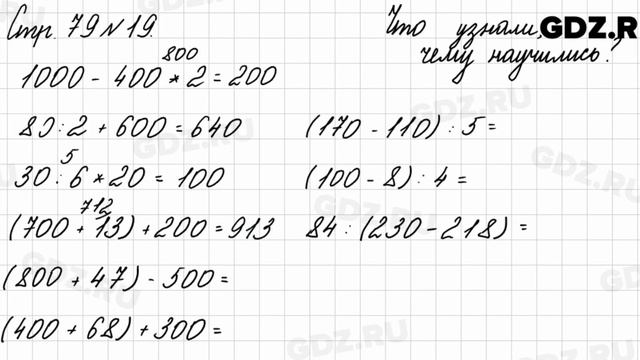 Стр. 79 №19
Что узнали,
чему научились?
GDZ.R
800
1000 - 400 * 2 = 200
80 : 2 + 600 = 640
5
30 : 6 * 20 = 100
712
(700 + 13) + 200 = 913
(800 + 47) - 500 =
(400 + 68) + 300 =
(170 - 110) : 5 =
(100 - 8) : 4 =
84 : (230 - 218) =
GDZ.RU
GDZ.RU
GDZ.RU
GDZ.RU
GDZ.RU
GDZ.RU